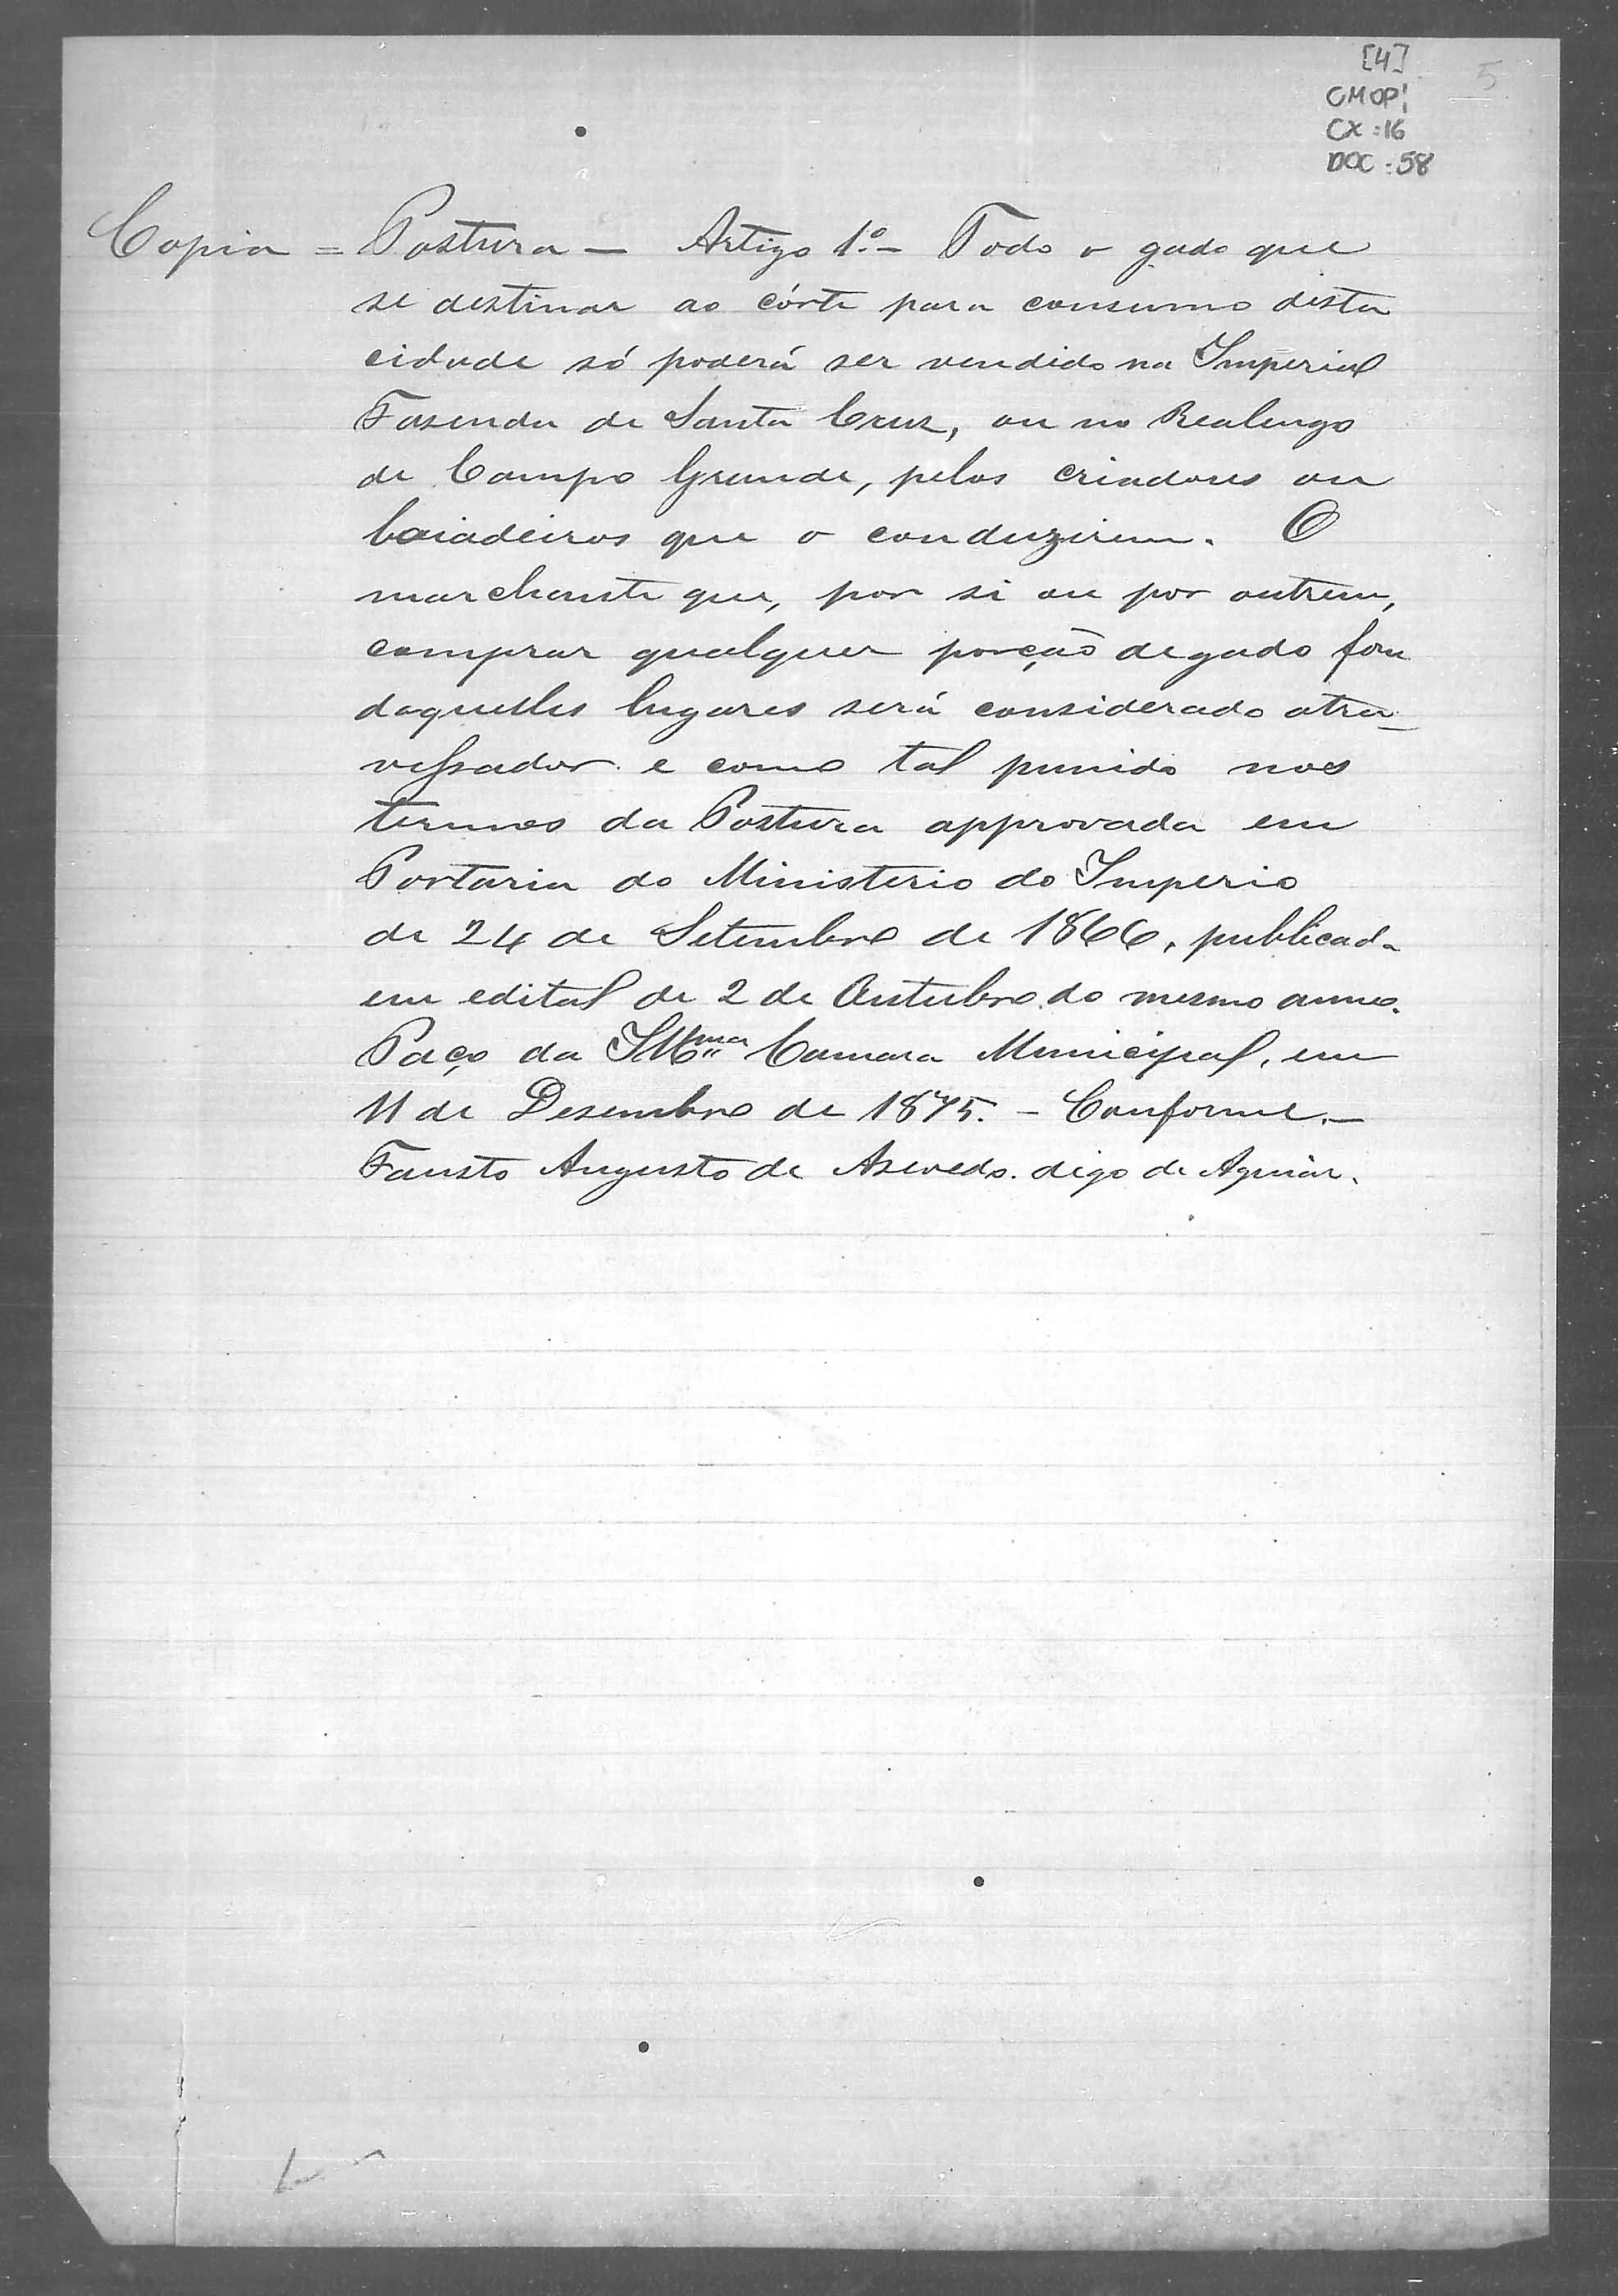 [4]
5
CMOP!
CX:16
DOC:58
Copia = Postura — Artigo 1.º — Todo o gado que
se destinar ao córte para consumo desta
cidade só poderá ser vendido na Imperial
Fasenda de Santa Cruz, ou no Realengo
de Campo Grande, pelos criadores ou
boiadeiros que o conduzirem. O
marchante que, por si ou por outrem,
comprar qualquer porção de gado fora
daquelles lugares será considerado atra-
vessador e como tal punido nos
termos da Postura approvada em
Portaria do Ministerio do Imperio
de 24 de Setembro de 1866, publicada
em edital de 2 de Outubro do mesmo anno.
Paço da Illma Camara Municipal, em
11 de Desembro de 1875. — Conforme. —
Fausto Augusto de Asevedo. digo de Aguiar.